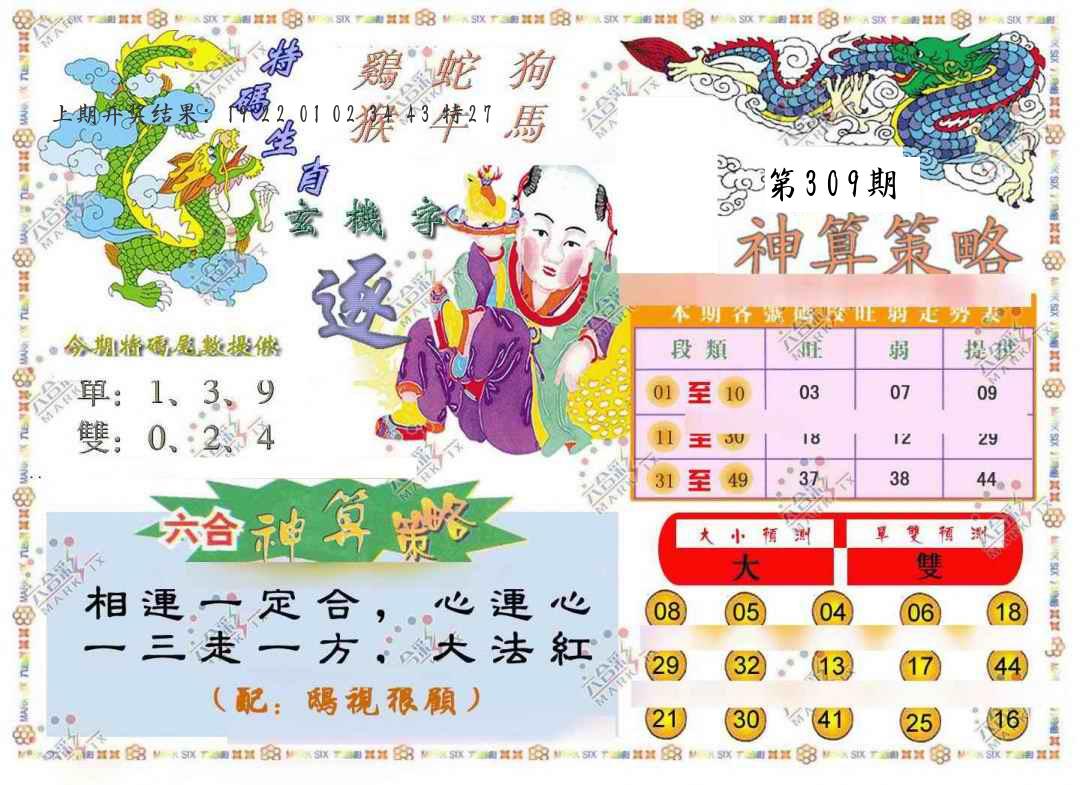 特碼生肖
鷄 蛇 狗
上期开奖结果：19 22 01 02 34 43 特27
猴 牛 馬
玄機字
逐
今期特碼尾數提供
單：1、3、9
雙：0、2、4
第309期
神算策略
本期各號碼段旺弱走勢表
段類 旺 弱 提供
01 至 10 03 07 09
11 至 30 18 12 29
31 至 49 37 38 44
六合 神算策略
相運一定合，心運心
一三走一方，大法紅
（配：鴟視狠顧）
大小預測 單雙預測
大 雙
08 05 04 06 18
29 32 13 17 44
21 30 41 25 16